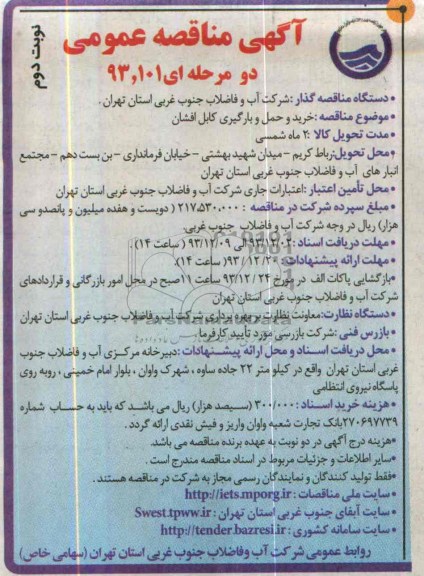 نوبت دوم
آگهی مناقصه عمومی
دو مرحله ای ۹۳٫۱۰۱
• دستگاه مناقصه گذار : شرکت آب و فاضلاب جنوب غربی استان تهران .
• موضوع مناقصه : خرید و حمل و بارگیری کابل افشان
• مدت تحویل کالا : ۲ ماه شمسی
• محل تحویل: رباط کریم – میدان شهید بهشتی – خیابان فرمانداری – بن بست دهم – مجتمع
انبار های آب و فاضلاب جنوب غربی استان تهران
• محل تأمین اعتبار : اعتبارات جاری شرکت آب و فاضلاب جنوب غربی استان تهران
• مبلغ سپرده شرکت در مناقصه : ۲۱۷،۵۳۰،۰۰۰ ( دویست و هفده میلیون و پانصدو سی
هزار) ریال در وجه شرکت آب و فاضلاب جنوب غربی.
• مهلت دریافت اسناد : ۹۳/۱۲/۰۲ الی ۹۳/۱۲/۰۹ ( ساعت ۱۴) .
• مهلت ارائه پیشنهادات : ۹۳/۱۲/۲۰ ( ساعت ۱۴).
• بازگشایی پاکات الف در مورخ ۹۳/۱۲/۲۴ ساعت ۱۱صبح در محل امور بازرگانی و قراردادهای
شرکت آب و فاضلاب جنوب غربی استان تهران
• دستگاه نظارت: معاونت نظارت بر بهره برداری شرکت آب و فاضلاب جنوب غربی استان تهران
• بازرس فنی : شرکت بازرسی مورد تأیید کارفرما
• محل دریافت اسناد و محل ارائه پیشنهادات : دبیرخانه مرکزی آب و فاضلاب جنوب
غربی استان تهران واقع در کیلو متر ۲۲ جاده ساوه ، شهرک واوان ، بلوار امام خمینی ، روبه روی
پاسگاه نیروی انتظامی
• هزینه خرید اسناد : ۳۰۰/۰۰۰ (سیصد هزار) ریال می باشد که باید به حساب شماره
۲۷۰۶۹۷۷۳۹بانک تجارت شعبه واوان واریز و فیش نقدی ارائه گردد .
• هزینه درج آگهی در دو نوبت به عهده برنده مناقصه می باشد.
• سایر اطلاعات و جزئیات مربوط در اسناد مناقصه مندرج است .
• فقط تولید کنندگان و نمایندگان رسمی مجاز به شرکت در مناقصه هستند .
• سایت ملی مناقصات : http://iets.mporg.ir
• سایت آبفای جنوب غربی استان تهران : Swest.tpww.ir
• سایت سامانه کشوری : http://tender.bazresi.ir
روابط عمومی شرکت آب وفاضلاب جنوب غربی استان تهران (سهامی خاص)